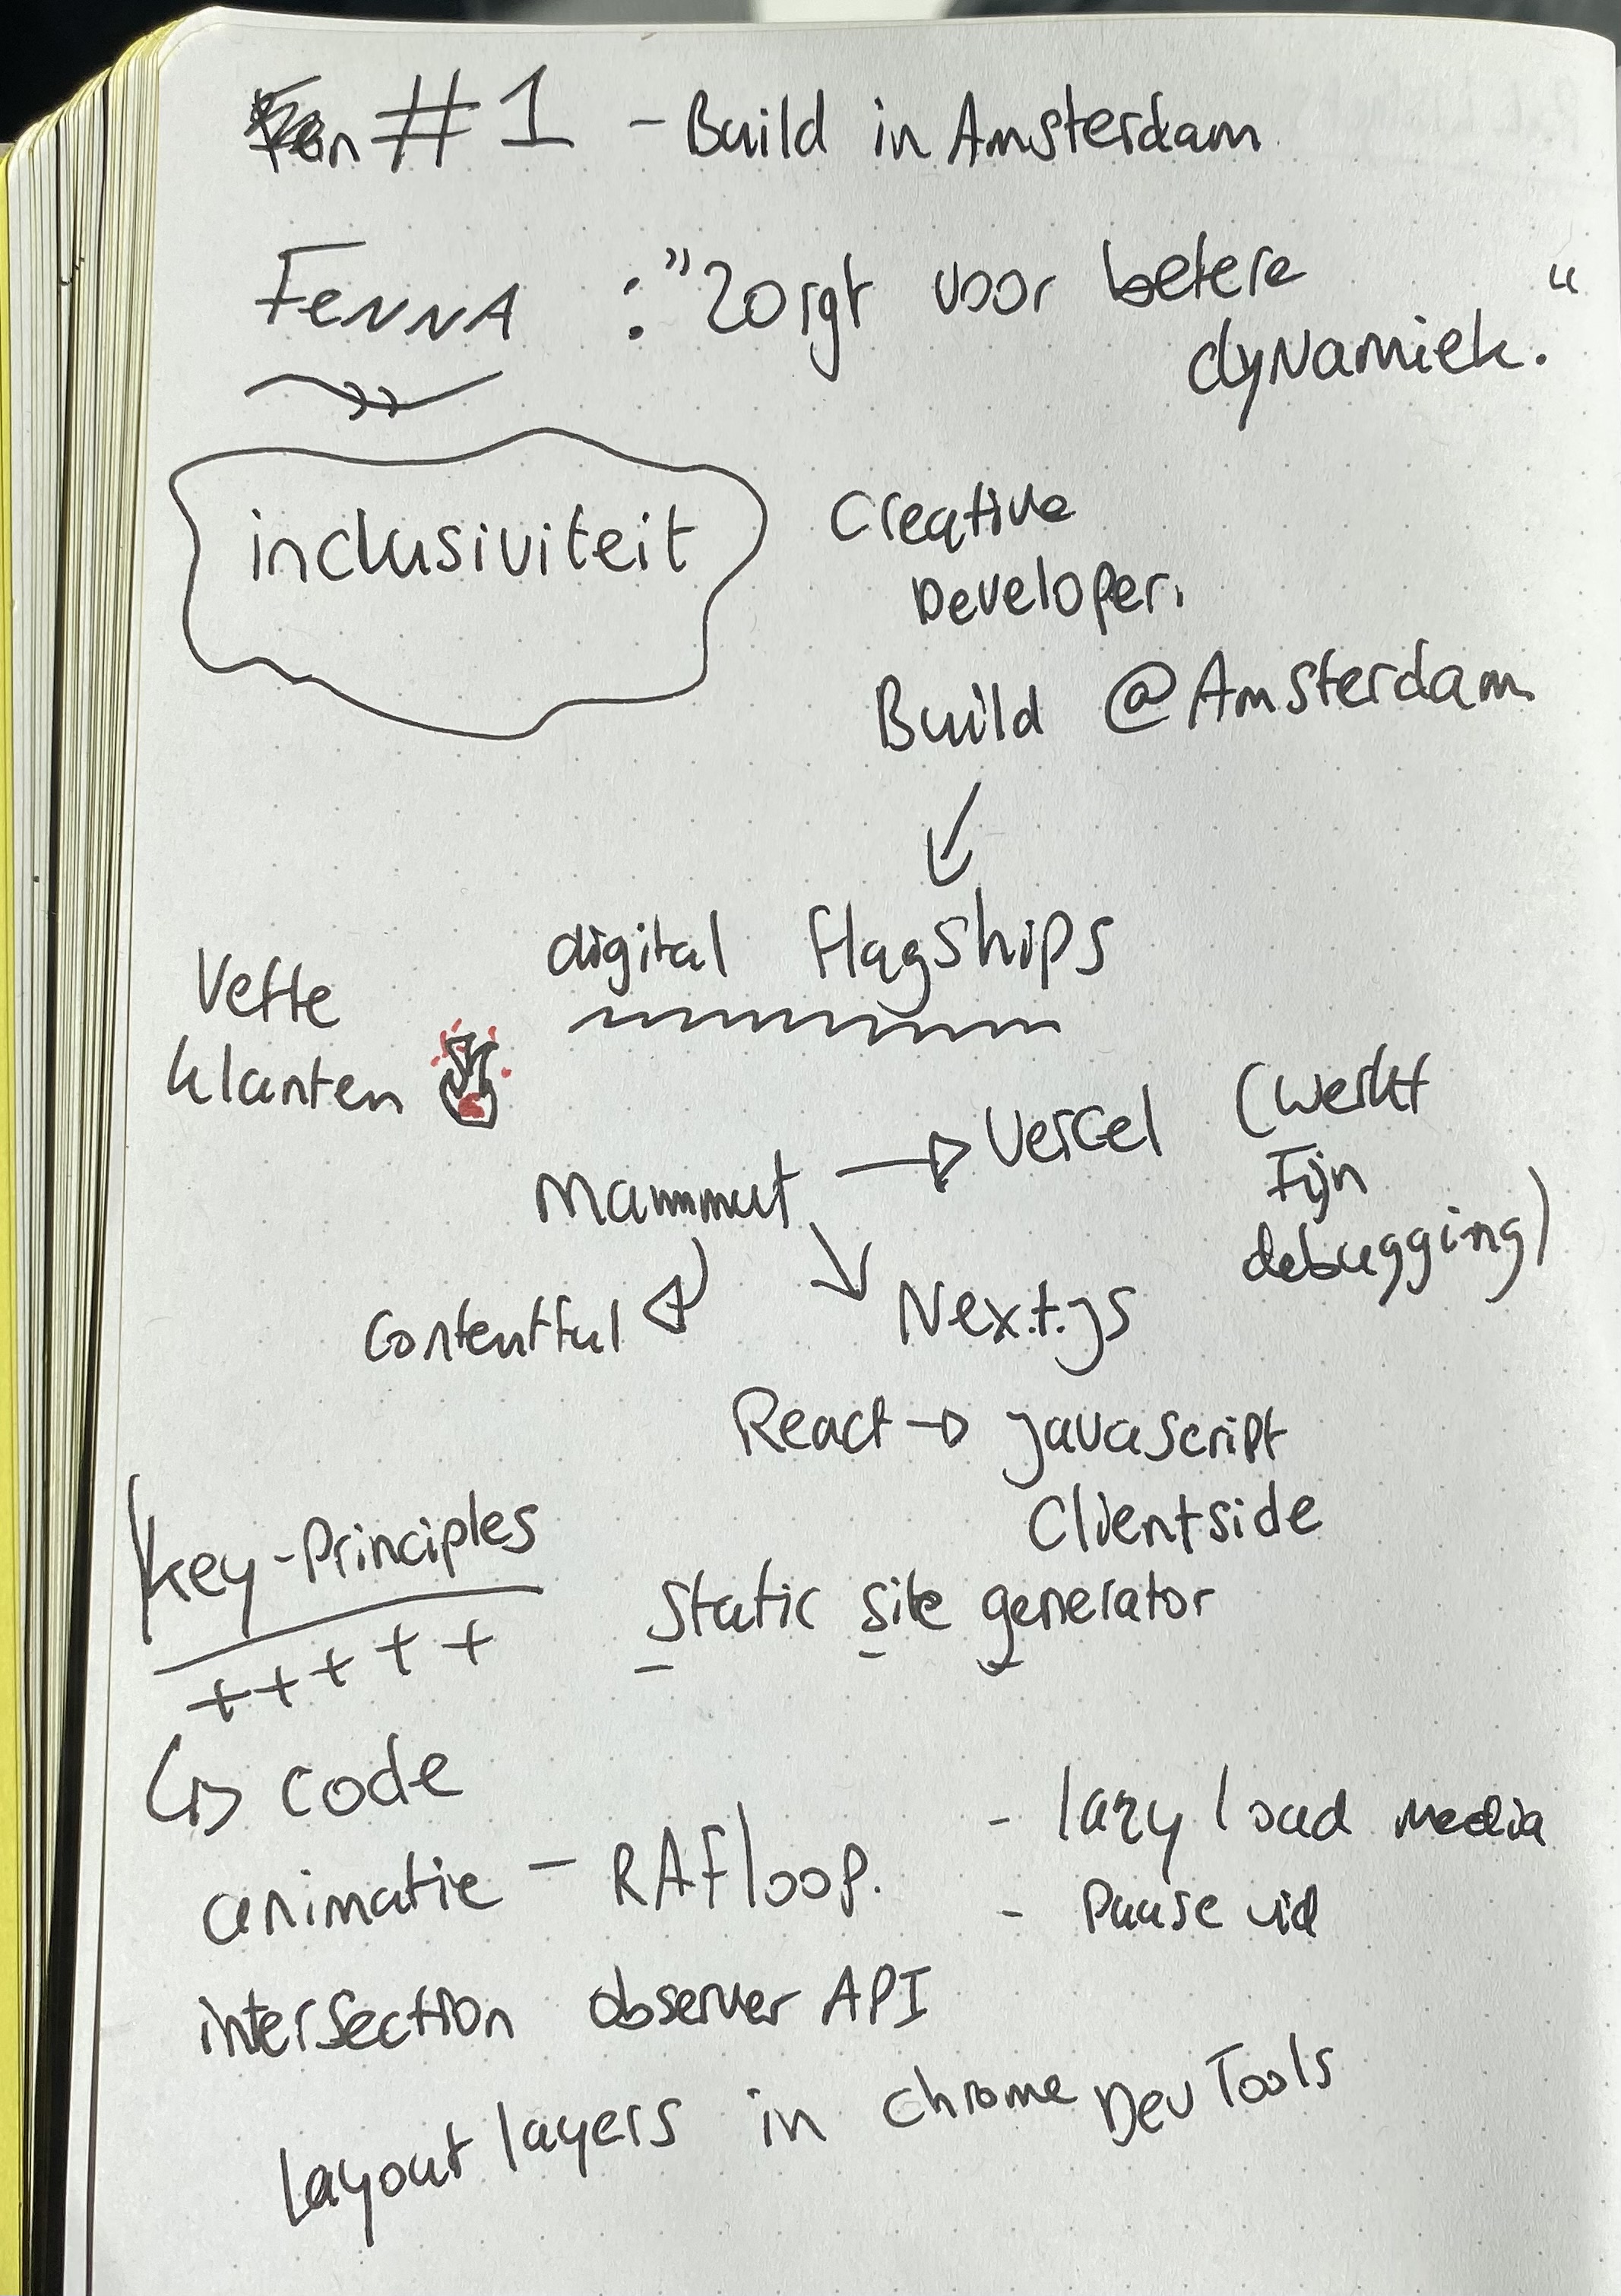 #1 - Build in Amsterdam
FENNA : "Zorgt voor betere
dynamiek."
inclusiviteit
Creative
Developer.
Build @Amsterdam
digital flagships
Vette
klanten
Mammut → Vercel (werkt
Fijn
debugging)
Contentful
Next.js
React → javascript
Clientside
Key-Principles
Static site generator
+++++
↳ code
- lazy load media
animatie - RAF loop.
- Pause vid
intersection observer API
Layout layers in chrome DevTools